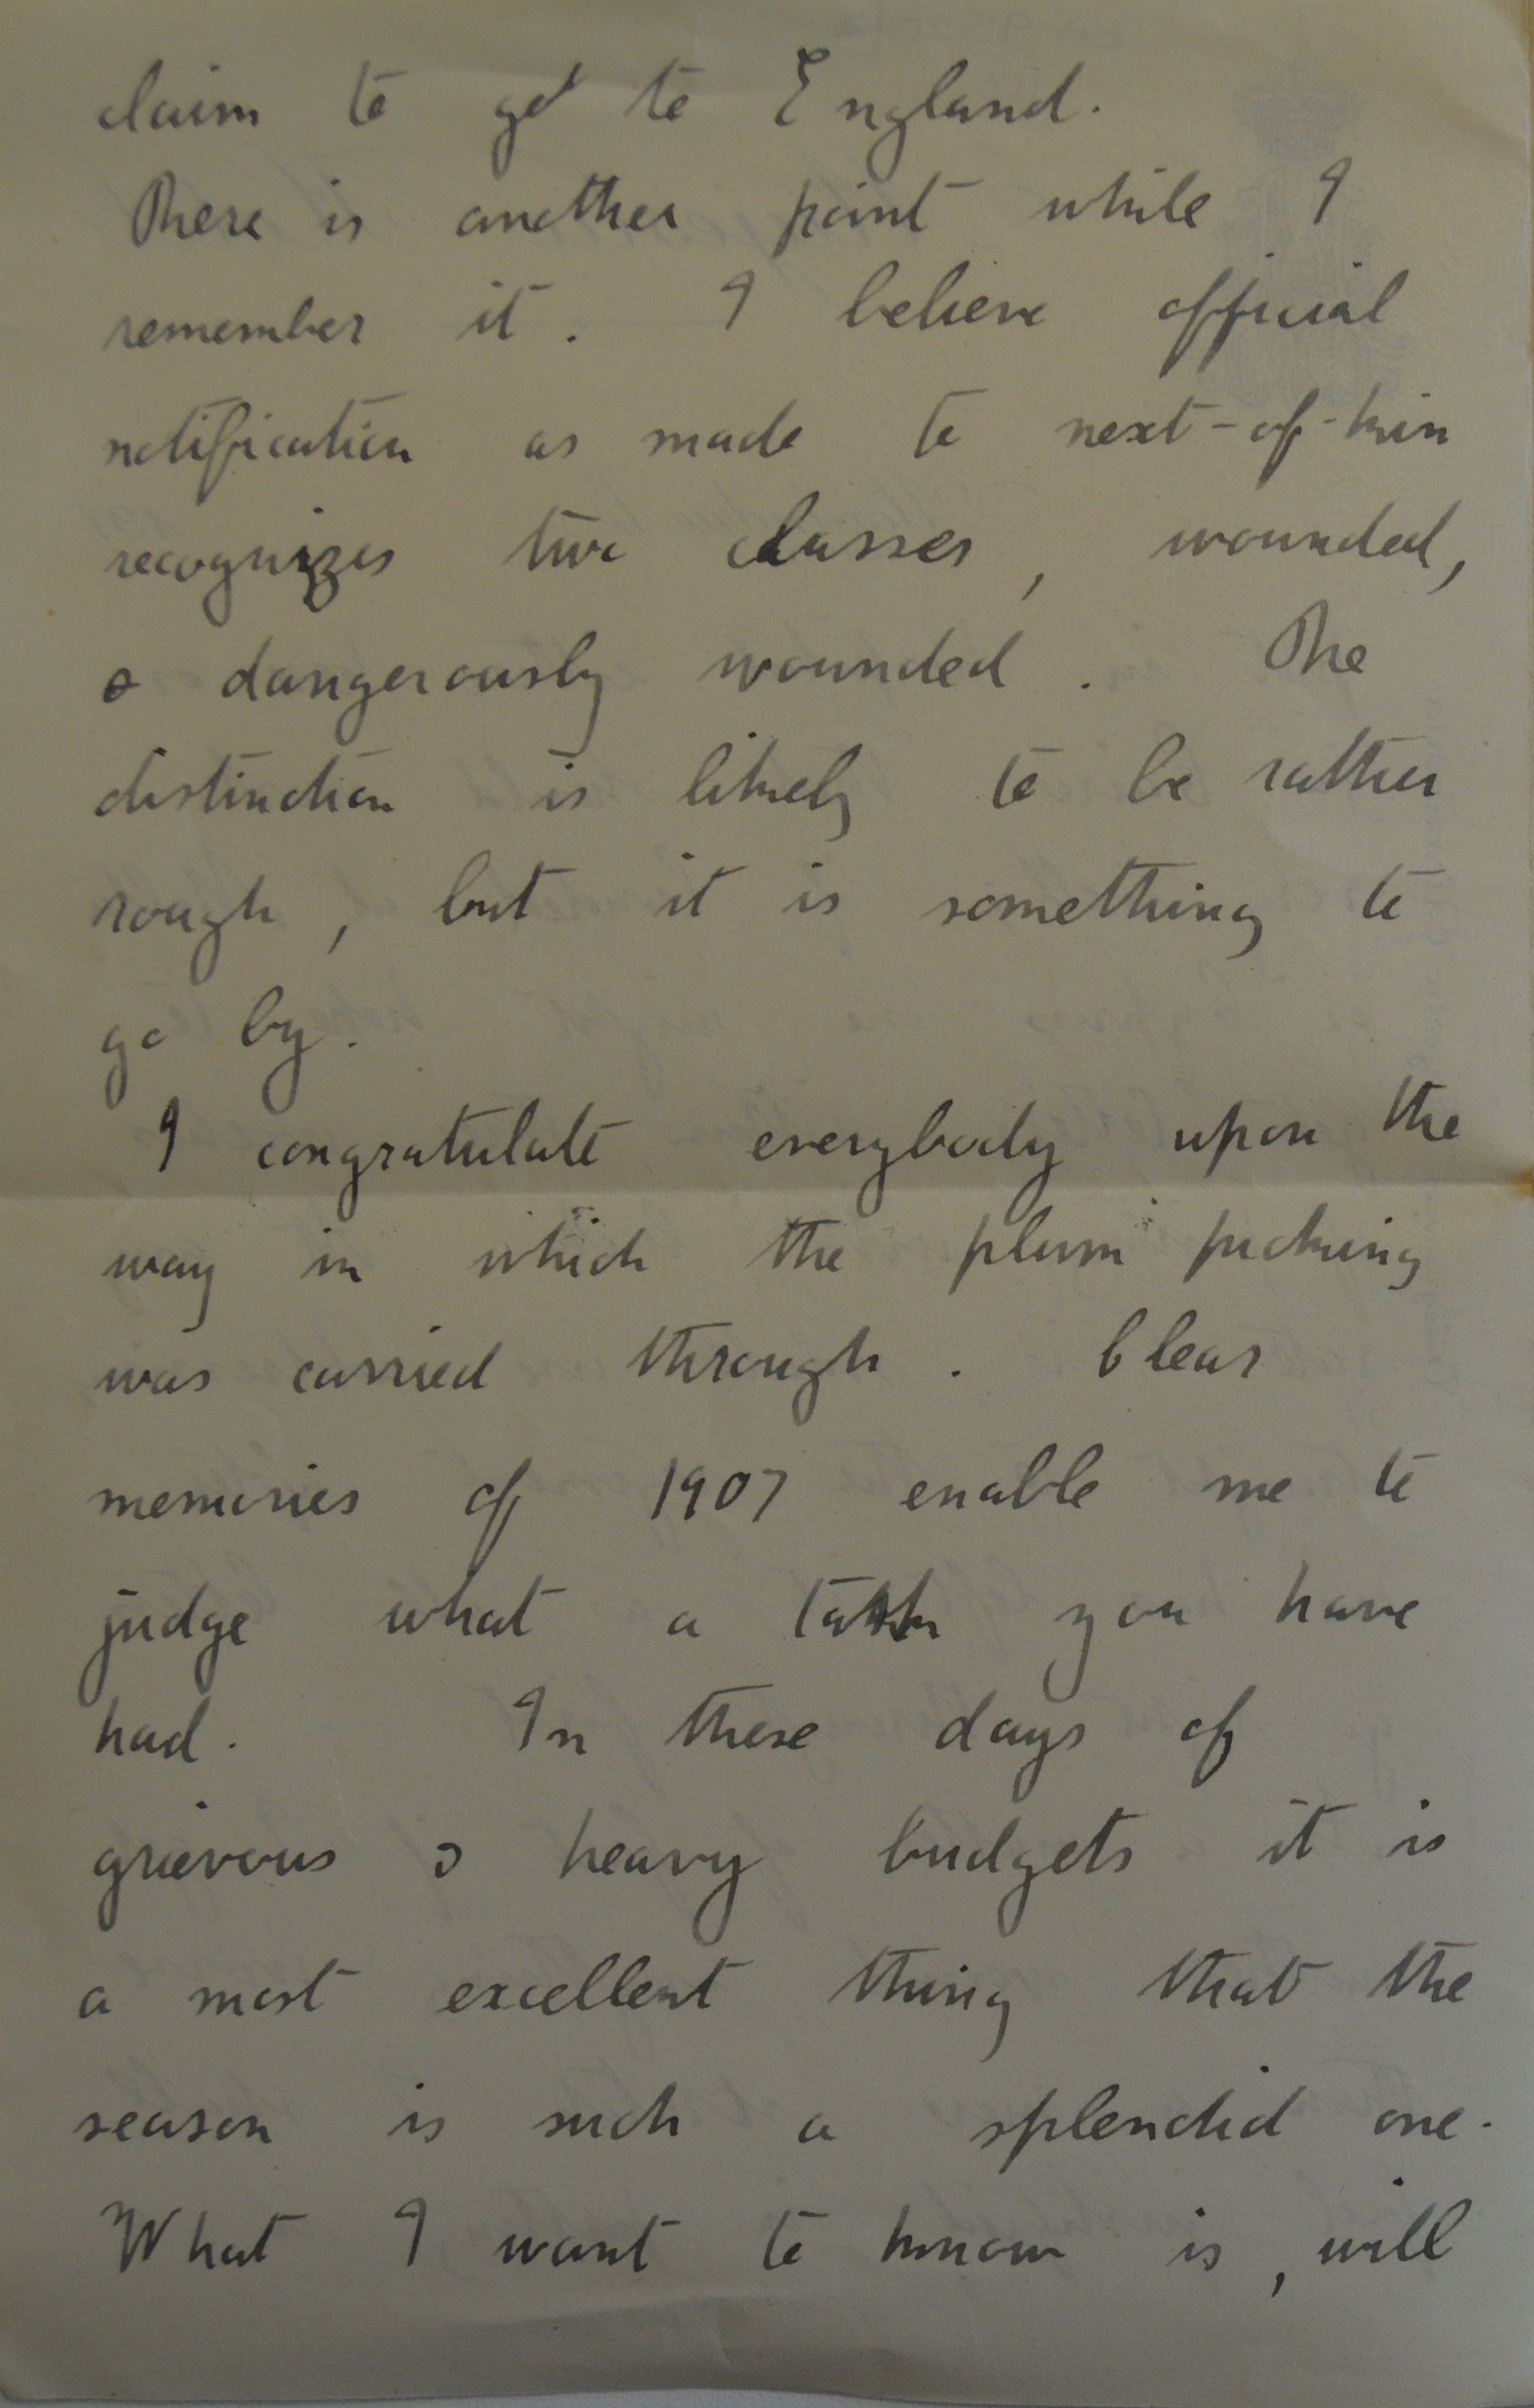 claim to get to England.
There is another point while I
remember it. I believe official
notification as made to next-of-kin
recognizes two classes, wounded,
& dangerously wounded. The
distinction is likely to be rather
rough, but it is something to
go by.
I congratulate everybody upon the
way in which the plum picking
was carried through. Clear
memories of 1907 enable me to
judge what a task you have
had. In these days of
grievous & heavy budgets it is
a most excellent thing that the
season is such a splendid one.
What I want to know is, will